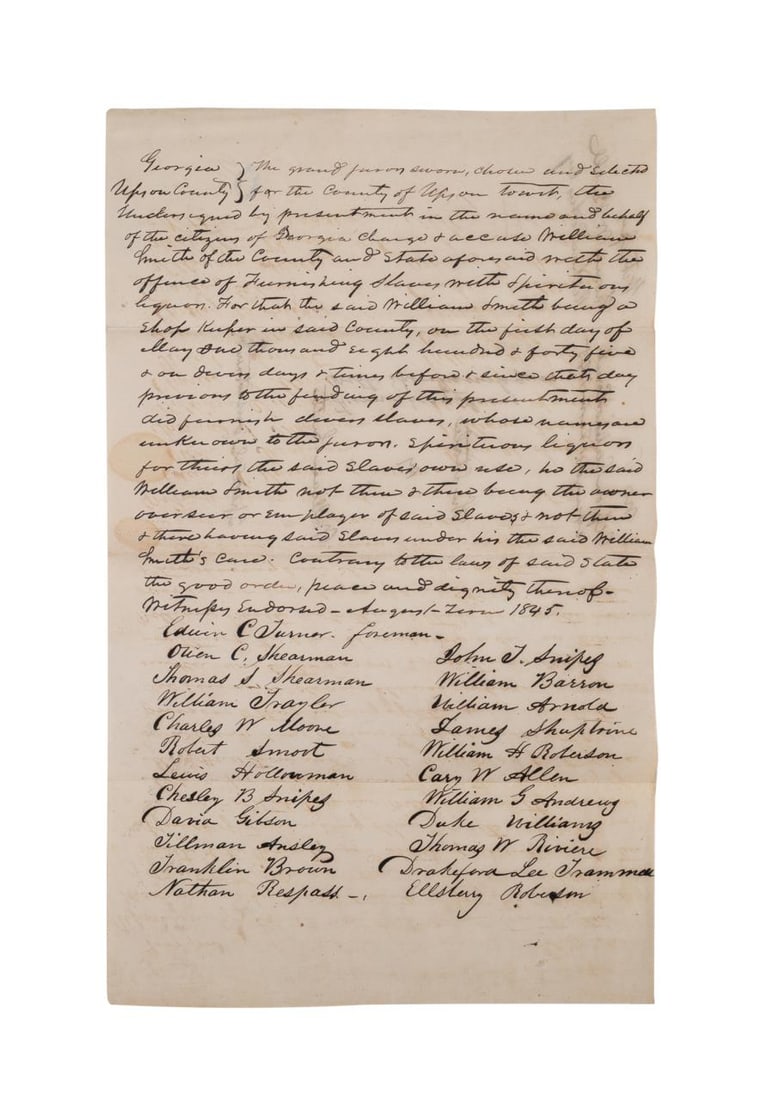 Georgia } The grand jurors sworn, chosen and selected
Upson County } for the County of Upson towit, the
Undersigned by presentment in the name and behalf
of the citizens of Georgia charge & accuse William
Smith of the County and State aforesaid with the
offence of Furnishing Slaves with Spirituous
liquors. For that the said William Smith being a
Shop Keeper in said County, on the first day of
May One thousand Eight hundred & forty five
& on divers days & times before & since that day
previous to the finding of this presentment
did furnish divers slaves, whose names are
unknown to the jurors. Spirituous liquors
for theirs the said Slaves own use, he the said
William Smith not then & there being the owner
overseer or Employer of said Slaves & not then
& there having said Slaves under his the said William
Smith's care. Contrary to the laws of said State
the good order, peace and dignity thereof-
Witness Endorsed - August Term 1845.
Edwin C Turner. foreman -
Owen C. Shearman John T. Snipes
Thomas S Shearman William Barron
William Trayler William Arnold
Charles W Moore James Shuptrine
Robert Smoot William H Roberson
Lewis Holloman Cary W Allen
Chesley B Snipes William G Andrews
David Gibson Duke Williams
Tillman Ansley Thomas W Riviere
Franklin Brown Drakeford Lee Trammell
Nathan Respass -, Ellsberry Roberson